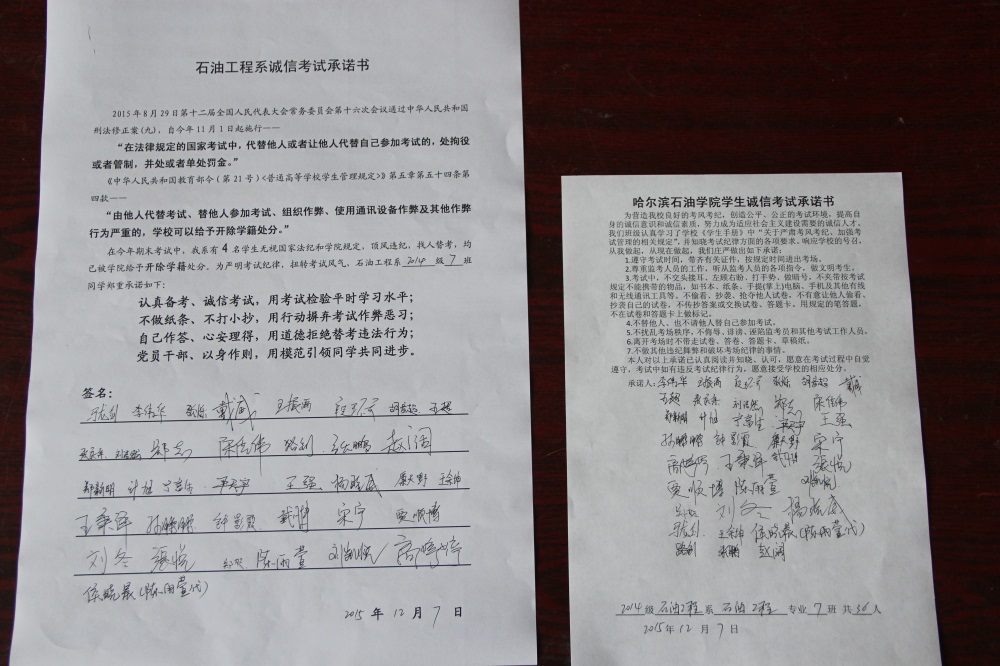 石油工程系诚信考试承诺书
2015年8月29日第十二届全国人民代表大会常务委员会第十六次会议通过中华人民共和国
刑法修正案(九)，自今年11月1日起施行——
“在法律规定的国家考试中，代替他人或者让他人代替自己参加考试的，处拘役
或者管制，并处或者单处罚金。”
《中华人民共和国教育部令（第21号）<普通高等学校学生管理规定>》第五章第五十四条第
四款——
“由他人代替考试、替他人参加考试、组织作弊、使用通讯设备作弊及其他作弊
行为严重的，学校可以给予开除学籍处分。”
在今年期末考试中，我系有4名学生无视国家法纪和学院规定，顶风违纪，找人替考，均
已被学院给予开除学籍处分。为严明考试纪律，扭转考试风气，石油工程系2014级7班
同学郑重承诺如下：
认真备考、诚信考试，用考试检验平时学习水平；
不做纸条、不打小抄，用行动摒弃考试作弊恶习；
自己作答、心安理得，用道德拒绝替考违法行为；
党员干部、以身作则，用模范引领同学共同进步。
签名：
李伟华 戴威 王振雨
郑志 陈佳伟 路剑 张鹏 赵阔
郑新明 计旭 王强 杨盛威 廉大野 王金坤
王秉泽 孙鹏鹏 钟影霞 武月 宋宁 贾顺博
刘冬 张悦 陈雨萱
(陈雨萱代)
2015年12月7日
哈尔滨石油学院学生诚信考试承诺书
为营造我校良好的考风考纪，创造公平、公正的考试环境，提高自
身的诚信意识和诚信素质，努力成为适应社会主义建设需要的诚信人才。
我们班级认真学习了学校《学生手册》中“关于严肃考风考纪、加强考
试管理的相关规定”，并知晓考试纪律方面的各项要求。响应学校的号召，
从我做起，从现在做起，我们庄严做出如下承诺：
1.遵守考试时间，带齐有关证件，按规定时间进出考场。
2.尊重监考人员的工作，听从监考人员的各项指令，做文明考生。
3.考试中，不交头接耳、左顾右盼、打手势、做暗号，不夹带按考试
规定不能携带的物品，如书本、纸条、手提(掌上)电脑、手机及其他有线
和无线通讯工具等。不偷看、抄袭、抢夺他人试卷，不有意让他人偷看、
抄袭自己的试卷，不传抄答案或交换试卷、答题卡。用规定的笔答题，
不在试卷和答题卡上做标记。
4.不替他人、也不请他人替自己参加考试。
5.不扰乱考场秩序，不侮辱、诽谤、诬陷监考员和其他考试工作人员。
6.离开考场时不带走试卷、答卷、答题卡、草稿纸。
7.不做其他违纪舞弊和破坏考场纪律的事情。
本人对以上承诺已认真阅读并知晓、认可，愿意在考试过程中自觉
遵守，考试中如有违反考试纪律行为，愿意接受学校的相应处分。
承诺人：李伟华 王振雨 戴威
郑志 陈佳伟
郑新明 计旭 王强
孙鹏鹏 钟影霞 廉大野 宋宁
王秉泽 张悦
贾顺博 陈雨萱
刘冬 杨盛威
王金坤 (陈雨萱代)
路剑 张鹏 赵阔
2014级石油工程系石油工程专业7班共36人
2015年12月7日